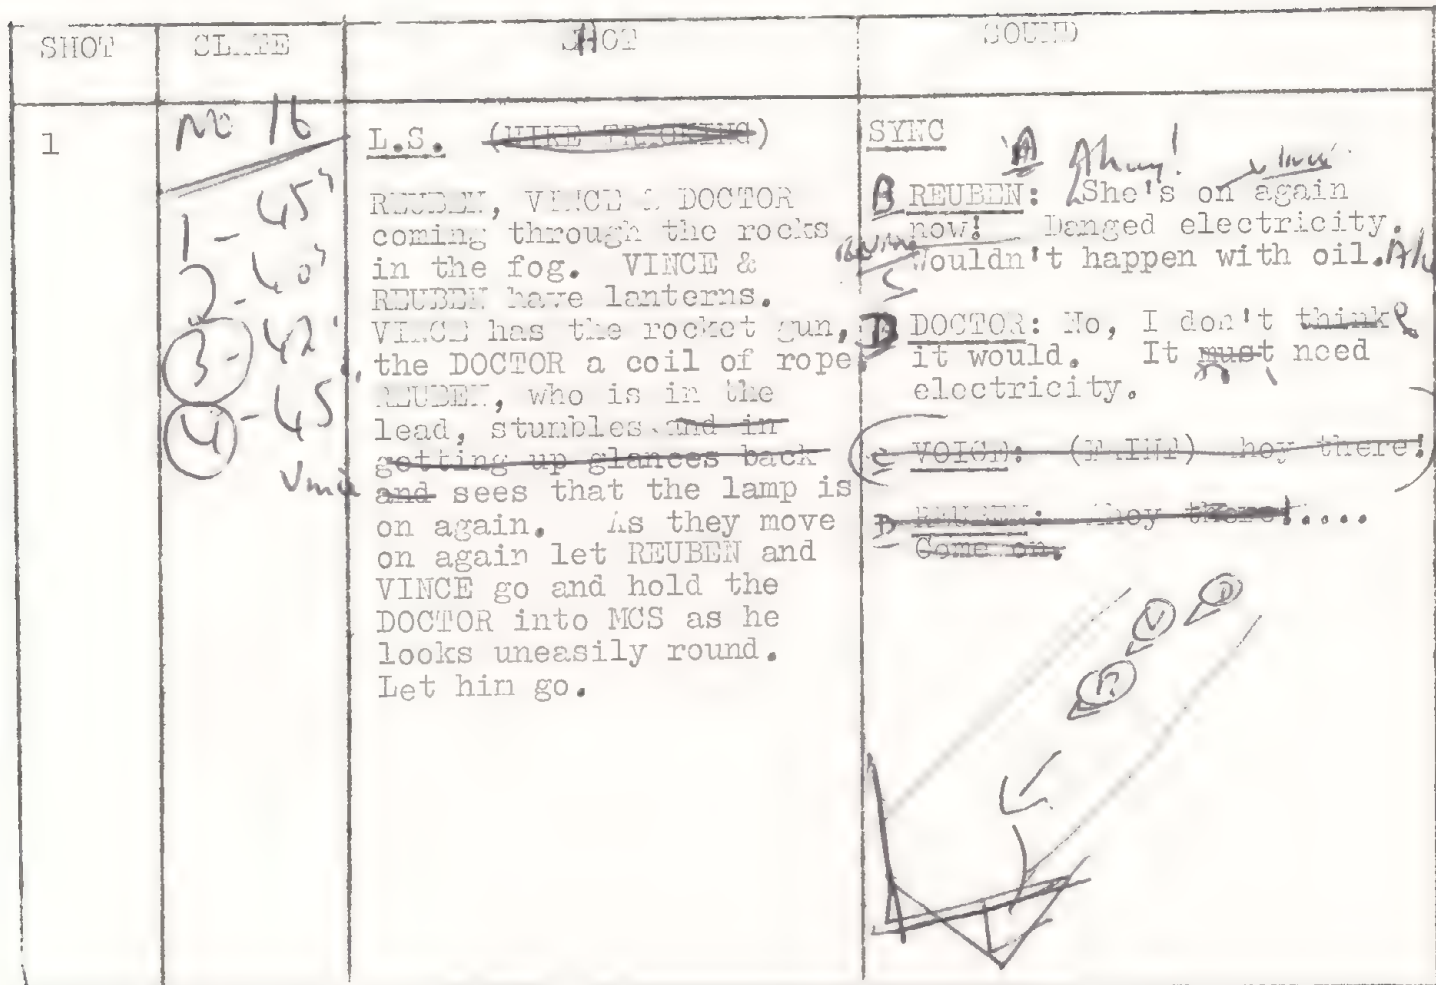 SHOT SLATE SHOT SOUND
1
No 16
1 - 45"
2 - 40"
3 - 42'
4 - 45
Vince
L.S. (MIKE TRACKING)
REUBEN, VINCE & DOCTOR
coming through the rocks
in the fog. VINCE &
REUBEN have lanterns.
VINCE has the rocket gun,
the DOCTOR a coil of rope.
REUBEN, who is in the
lead, stumbles and in
getting up glances back
and sees that the lamp is
on again. As they move
on again let REUBEN and
VINCE go and hold the
DOCTOR into MCS as he
looks uneasily round.
Let him go.
SYNC
A Ahoy!
Vince
B REUBEN: She's on again
now! Danged electricity.
Wouldn't happen with oil.
C
D DOCTOR: No, I don't think
it would. It must need
electricity.
C VOICE: (FAINT) Ahoy there!
D REUBEN: Ahoy there!....
Come on.
D
V
R